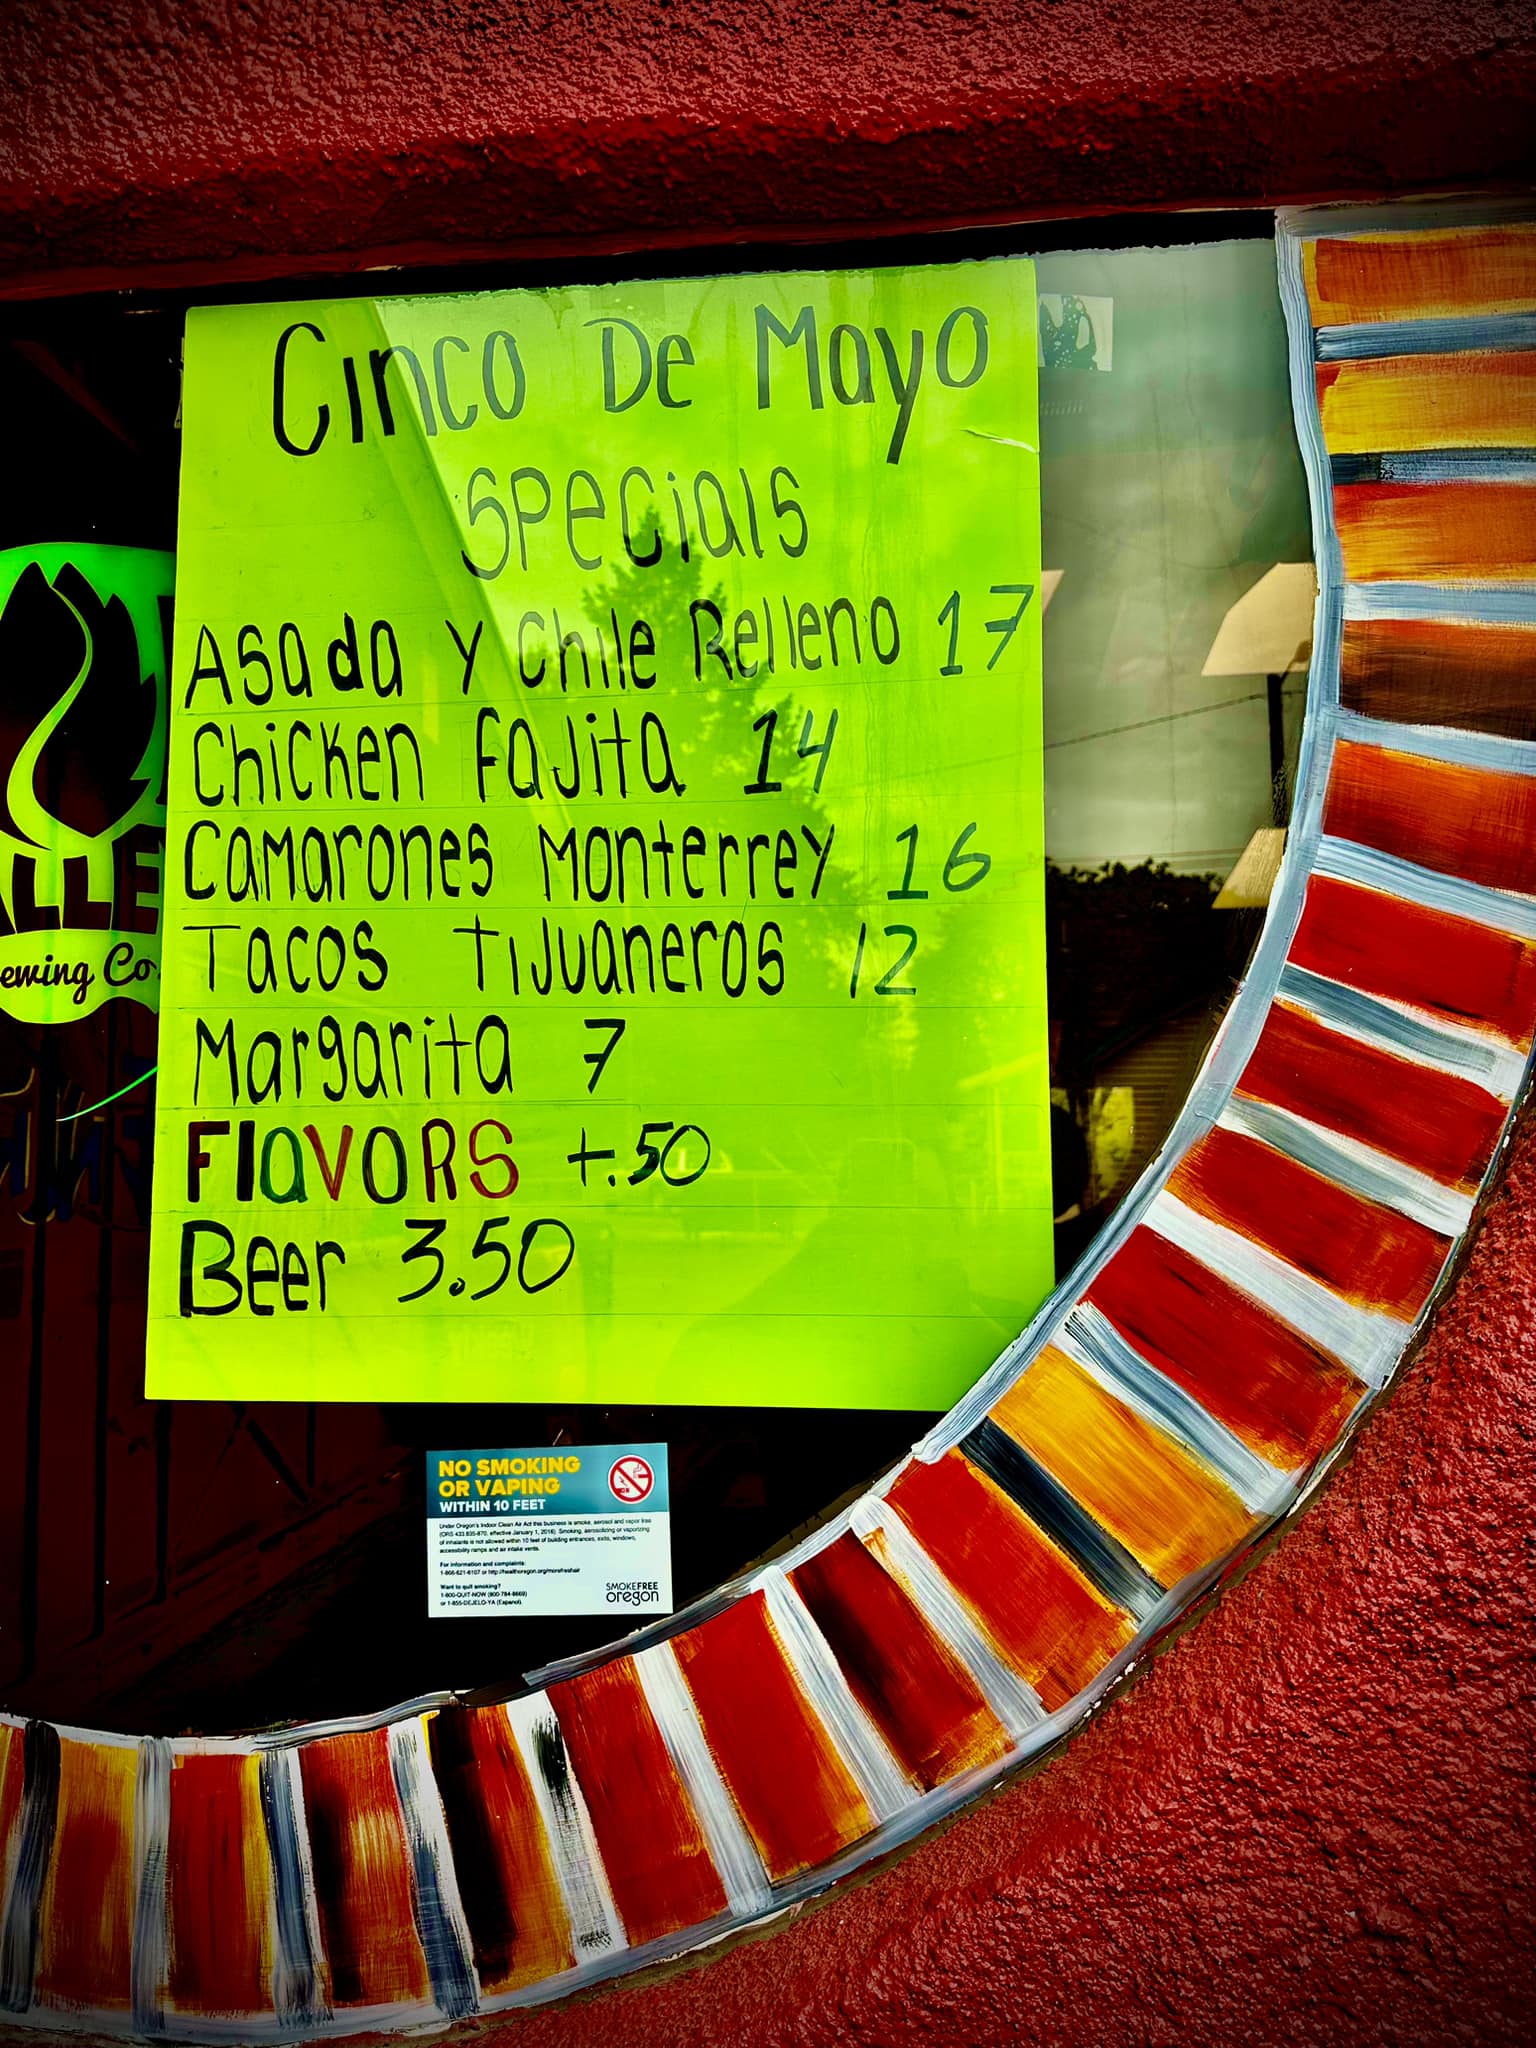 Cinco De Mayo
Specials
Asada y Chile Relleno 17
Chicken Fajita 14
Camarones Monterrey 16
Tacos Tijuaneros 12
Margarita 7
Flavors +.50
Beer 3.50
LLE
ewing Co.
NO SMOKING
OR VAPING
WITHIN 10 FEET
Under Oregon's Indoor Clean Air Act this business is smoke, aerosol and vapor free
(ORS 433.835-870, effective January 1, 2016). Smoking, aerosolizing or vaporizing
of inhalants is not allowed within 10 feet of building entrances, exits, windows,
accessibility ramps and air intake vents.
For information and complaints:
1-866-621-6107 or http://healthoregon.org/morefreshair
Want to quit smoking?
1-800-QUIT-NOW (800-784-8669)
or 1-855-DEJELO-YA (Espanol).
SMOKEFREE
oregon